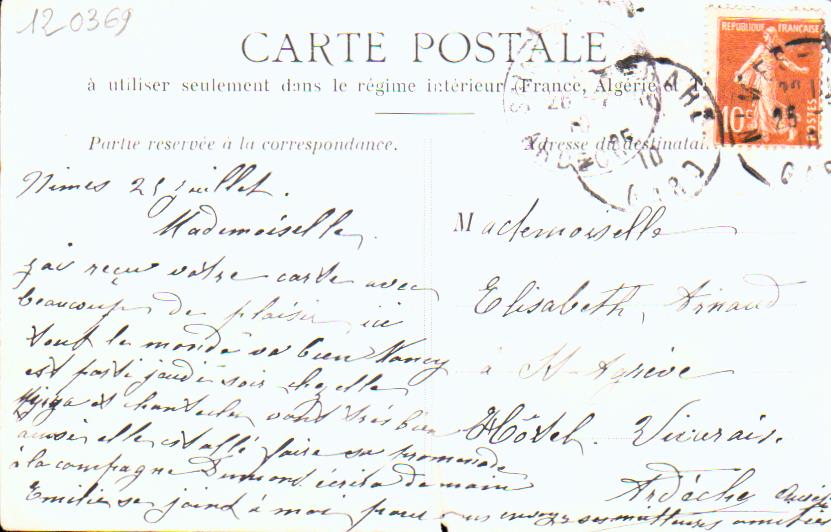 120369
CARTE POSTALE
à utiliser seulement dans le régime intérieur (France, Algérie et
Partie reservée à la correspondance.
Adresse du destinatai
REPUBLIQUE FRANÇAISE
10c
POSTES
25
10
GARD
Nimes 25 juillet.
Mademoiselle,
j'ai reçu votre carte avec
beaucoup de plaisir, ici
tout le monde va bien Nancy
est parti jeudi soir
et vont très bien
aussi elle est allé faire sa promenade
à la compagne écrira demain
Emilie se joind à moi pour vous
Mademoiselle
Elisabeth, Arnaud
à St Agrève
Hôtel. Vivarais.
Ardèche